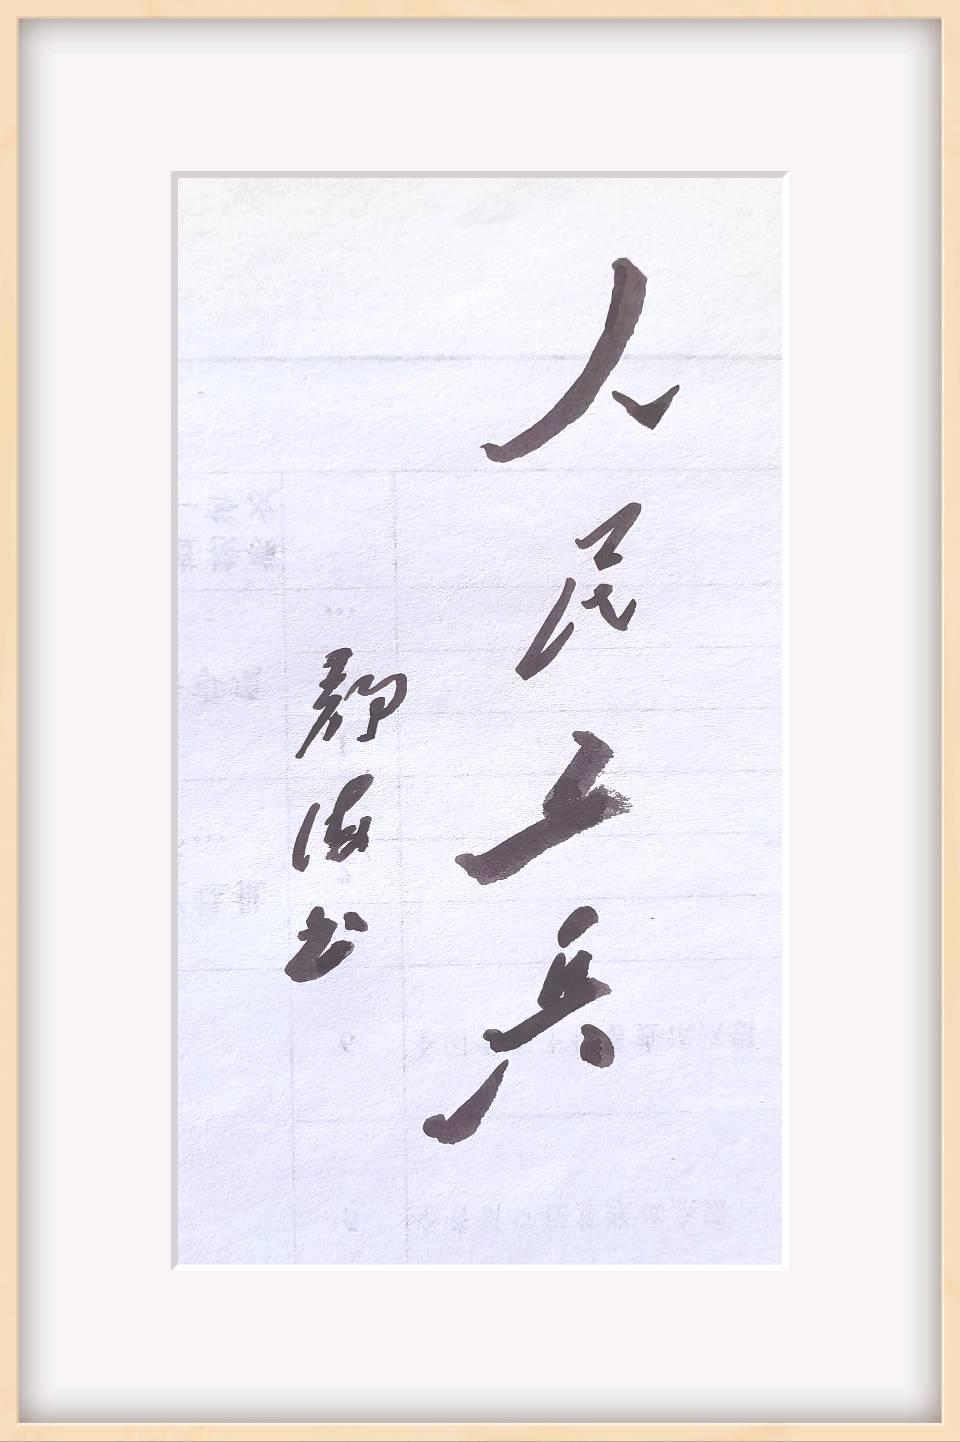 人民工兵
静海书